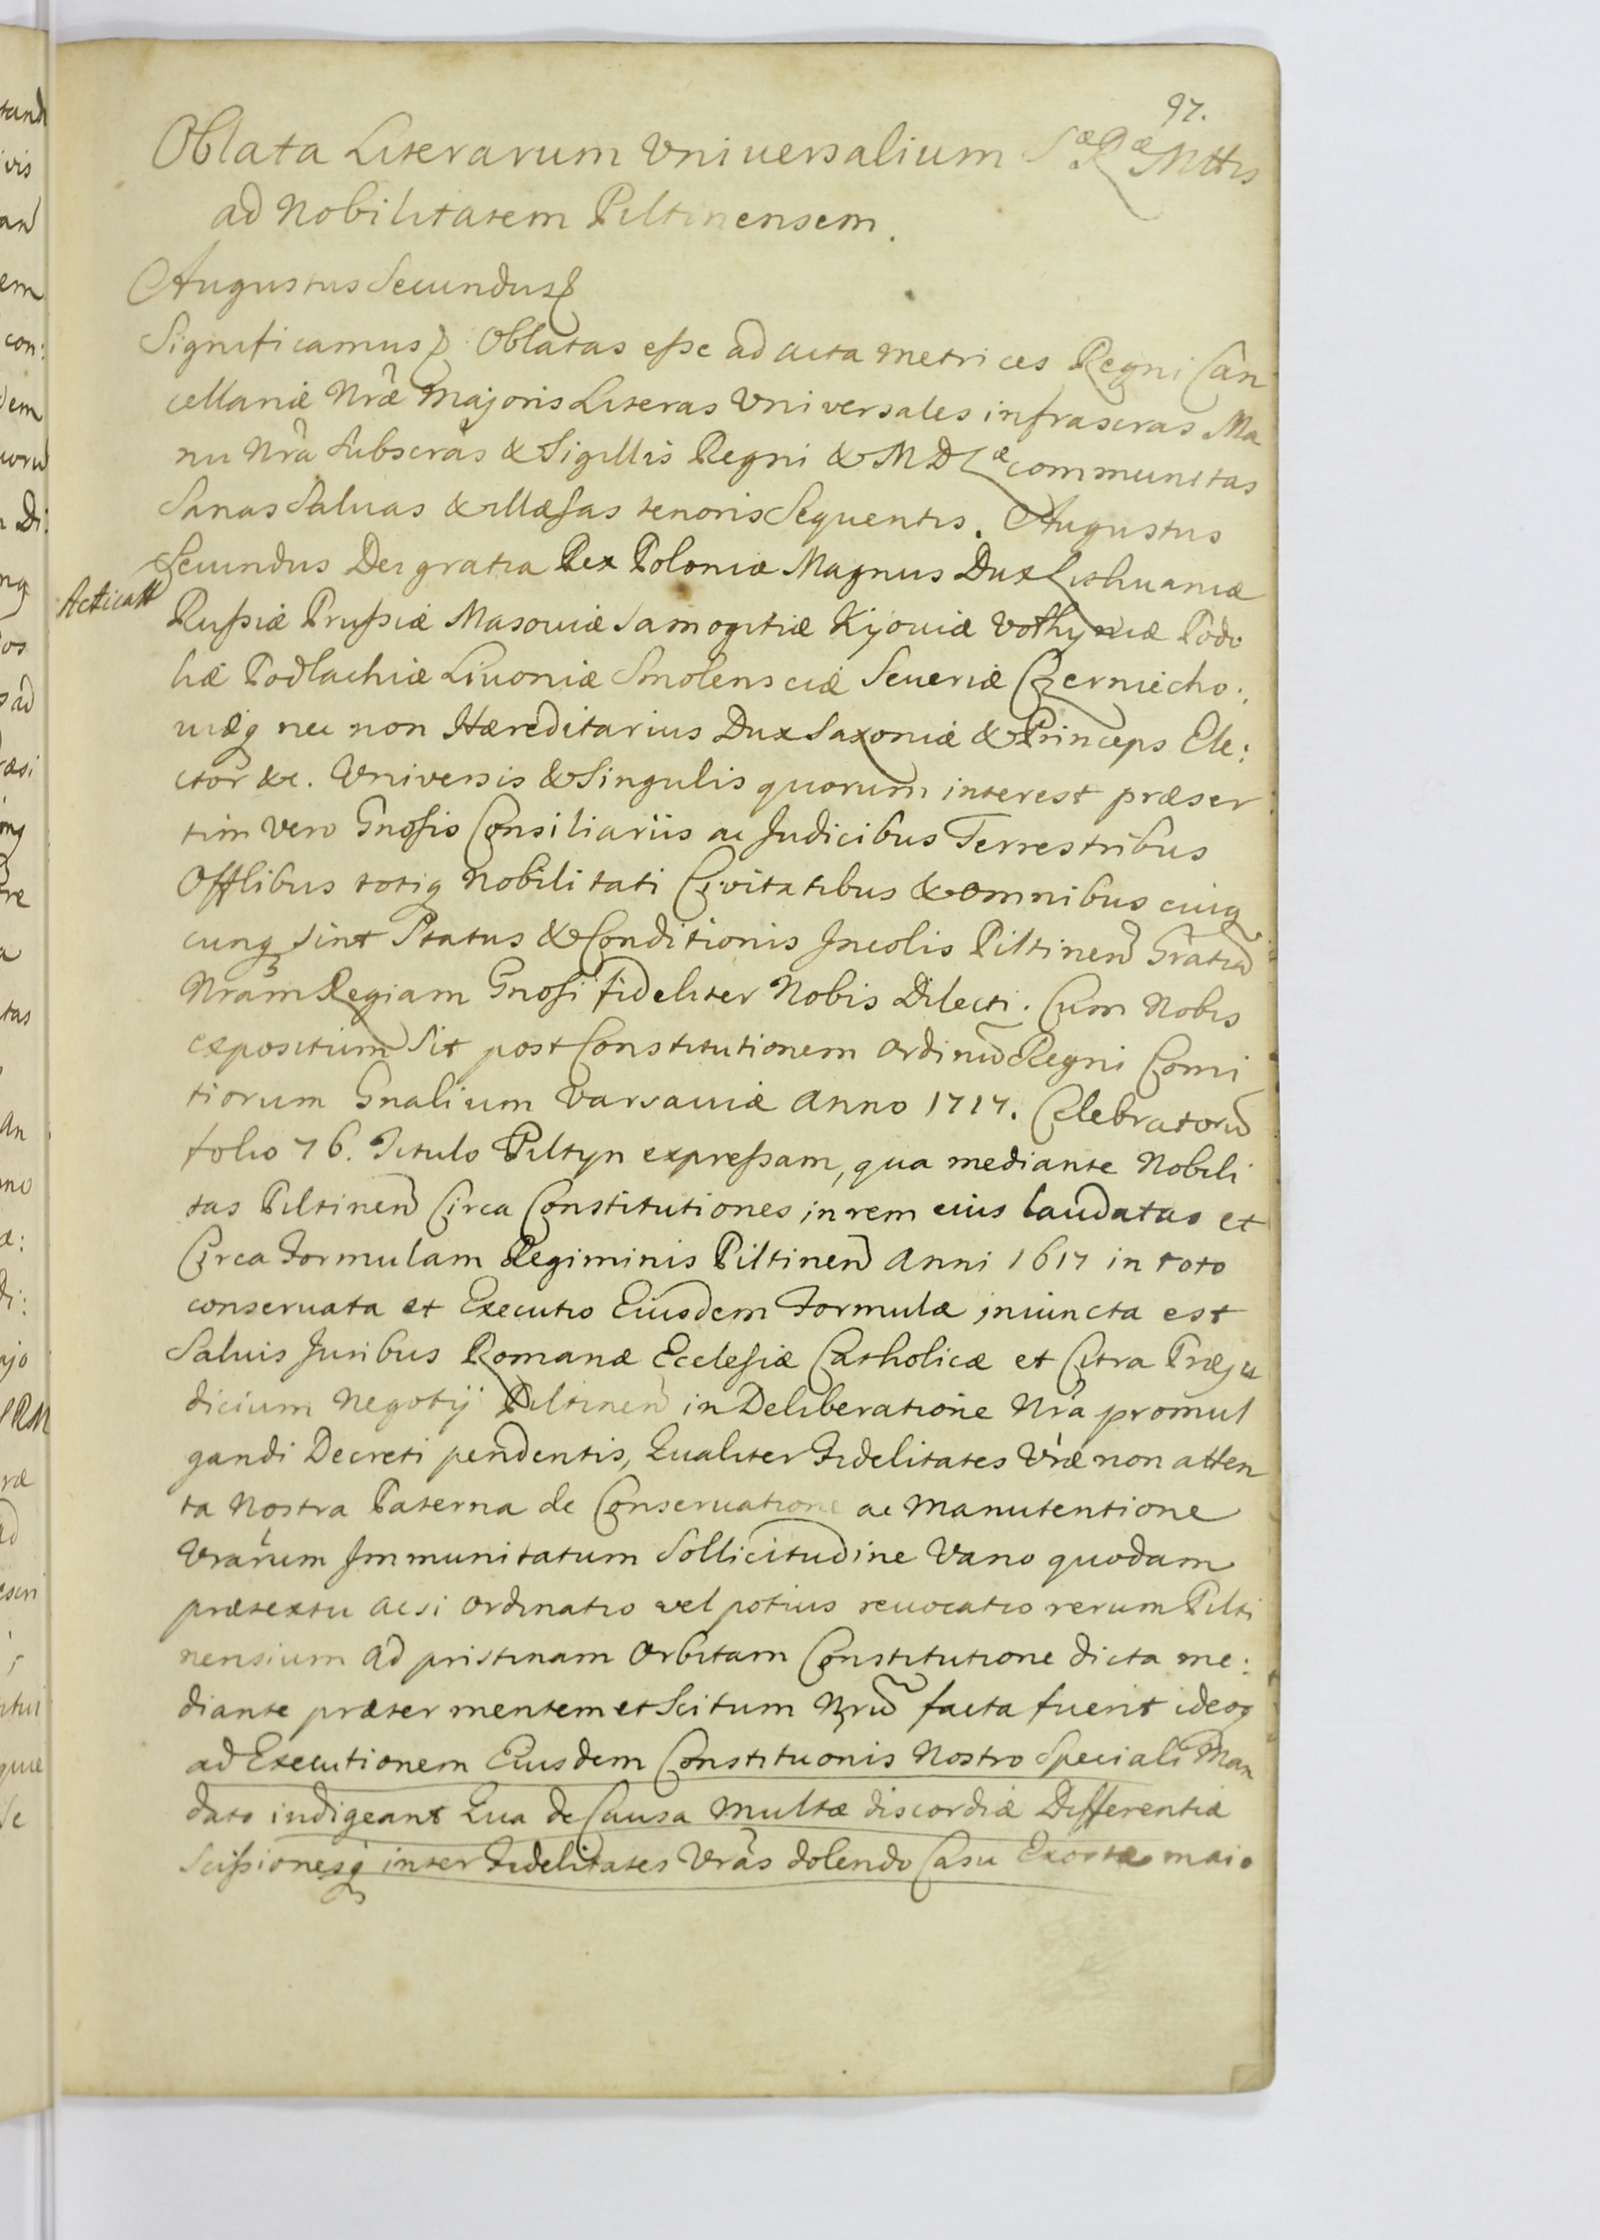 97.
Oblata Literarum Vniuersalium Sæ Ræ Mttis
ad Nobilitatem Piltinensem.
Augustus Secundus
Significamus Oblatas eſse ad acta metrices Regni Can
cellariæ Nræ Majoris Literas Vniversales infrascras Ma
nu Nra Subscras & Sigillis Regni & M D Læ communitas
Sanas Saluas & illæsas tenoris Sequentis. Augustus
Secundus Dei gratia Rex Poloniæ Magnus Dux Lithuaniæ
Acticatt
Ruſsiæ Pruſsiæ Masouiæ Samogitiæ Kijouiæ Volhyniæ Podo
liæ Podlachiæ Liuoniæ Smolensciæ Seueriæ Czerniecho:
uiæq nec non Hæreditarius Dux Saxoniæ & Princeps Ele:
ctor &c. Vniversis & Singulis quorum interest præser
tim vero Gnosis Consiliariis ac Judicibus Terrestribus
Offlibus totiq Nobilitati Civitatibus & omnibus cuiq
cunq sint Status & Conditionis Incolis Piltinen Gratia
Nram Regiam Gnosi fideliter Nobis Dilecti. Cum Nobis
expositum Sit post Constitutionem Ordinu Regni Comi
tiorum Gnalium Varsauiæ Anno 1717. Celebratoru
folio 76. Titulo Piltyn expreſsam, qua mediante Nobili
tas Piltinen Circa Constitutiones in rem eius laudatas et
Circa Formulam Regiminis Piltinen Anni 1617 in toto
conseruata et Executio Eiusdem Formulæ iniuncta est
Saluis Juribus Romanæ Ecclesiæ Catholicæ et Citra Præju
dicium Negotij Piltinen in Deliberatione Nra promul
gandi Decreti pendentis, Qualiter Fidelitates Vræ non atten
ta Nostra Paterna de Conseruatione ac Manutentione
Vrarum Immunitatum Sollicitudine Vano quodam
prætextu acsi Ordinatio vel potius reuocatio rerum Pilti
nensium ad pristinam Orbitam Constitutione dicta me:
diante præter mentem et Scitum Nru facta fuerit ideoq
ad Executionem Eiusdem Constituonis Nostro Speciali Man
dato indigeant Qua de Causa Multæ discordiæ Differentiæ
Sciſsionesq inter Fidelitates Vras dolendo Casu Exortæ maio